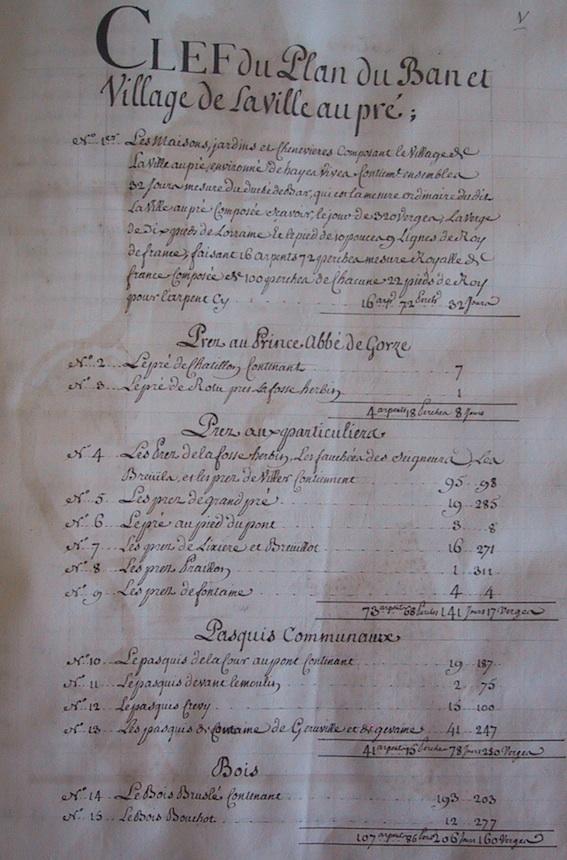 V
CLEF du Plan du Ban et
Village de Laville au pré ;
N.º 1.er Les Maisons, jardins et Chenevieres Composant le Village de
Laville au pré, environné de hayes vives Contient ensembles
32 Jours mesure du duché de Bar, qui est la mesure ordinaire dudit
Laville au pré Composée Scavoir, le jour de 320 Verges, La Verge
de Dix pieds de Lorraine Et le pied de 10 pouces 9 Lignes de Roy
de france, faisant 16 arpents 72 perches mesure Royalle de
france Composée de 100 perches de Chacune 22 pieds de Roy
pour l'arpent Cy 16 arp.t 72 perch.s 32 Jours
Prez au Prince Abbé de Gorze
N.º 2 Le pré de Chatillon Contenant 7
N.º 3 Le pré de Rotu pres La fosse herbin 1
4 arpents 18 perches 8 Jours
Prez aux particuliers
N.º 4 Les Prez de la fosse herbin, Les fauchées des Seigneurs, Les
Breüils, et les prez de Viller Contiennent 95 98
N.º 5 Les prez de grand pré 19 285
N.º 6 Le pré au pied du pont 3 8
N.º 7 Les prez de Lixiere et Breuillot 16 271
N.º 8 Les prez Praillon 1 311
N.º 9 Les prez de fontaine 4 4
73 arpents 68 perches 141 Jours 17 Verges
Pasquis Communaux
N.º 10 Le pasquis de la Cour au pont Contenant 19 187
N.º 11 Le pasquis devant le moulin 2 75
N.º 12 Le pasquis Crevy 15 100
N.º 13 Les pasquis de Containe de Genville et de 41 247
41 arpents 15 perches 78 Jours 280 Verges
Bois
N.º 14 Le Bois Bruslé Contenant 193 203
N.º 15 Le Bois Bouchot 12 277
107 arpents 86 206 Jours 160 Verges